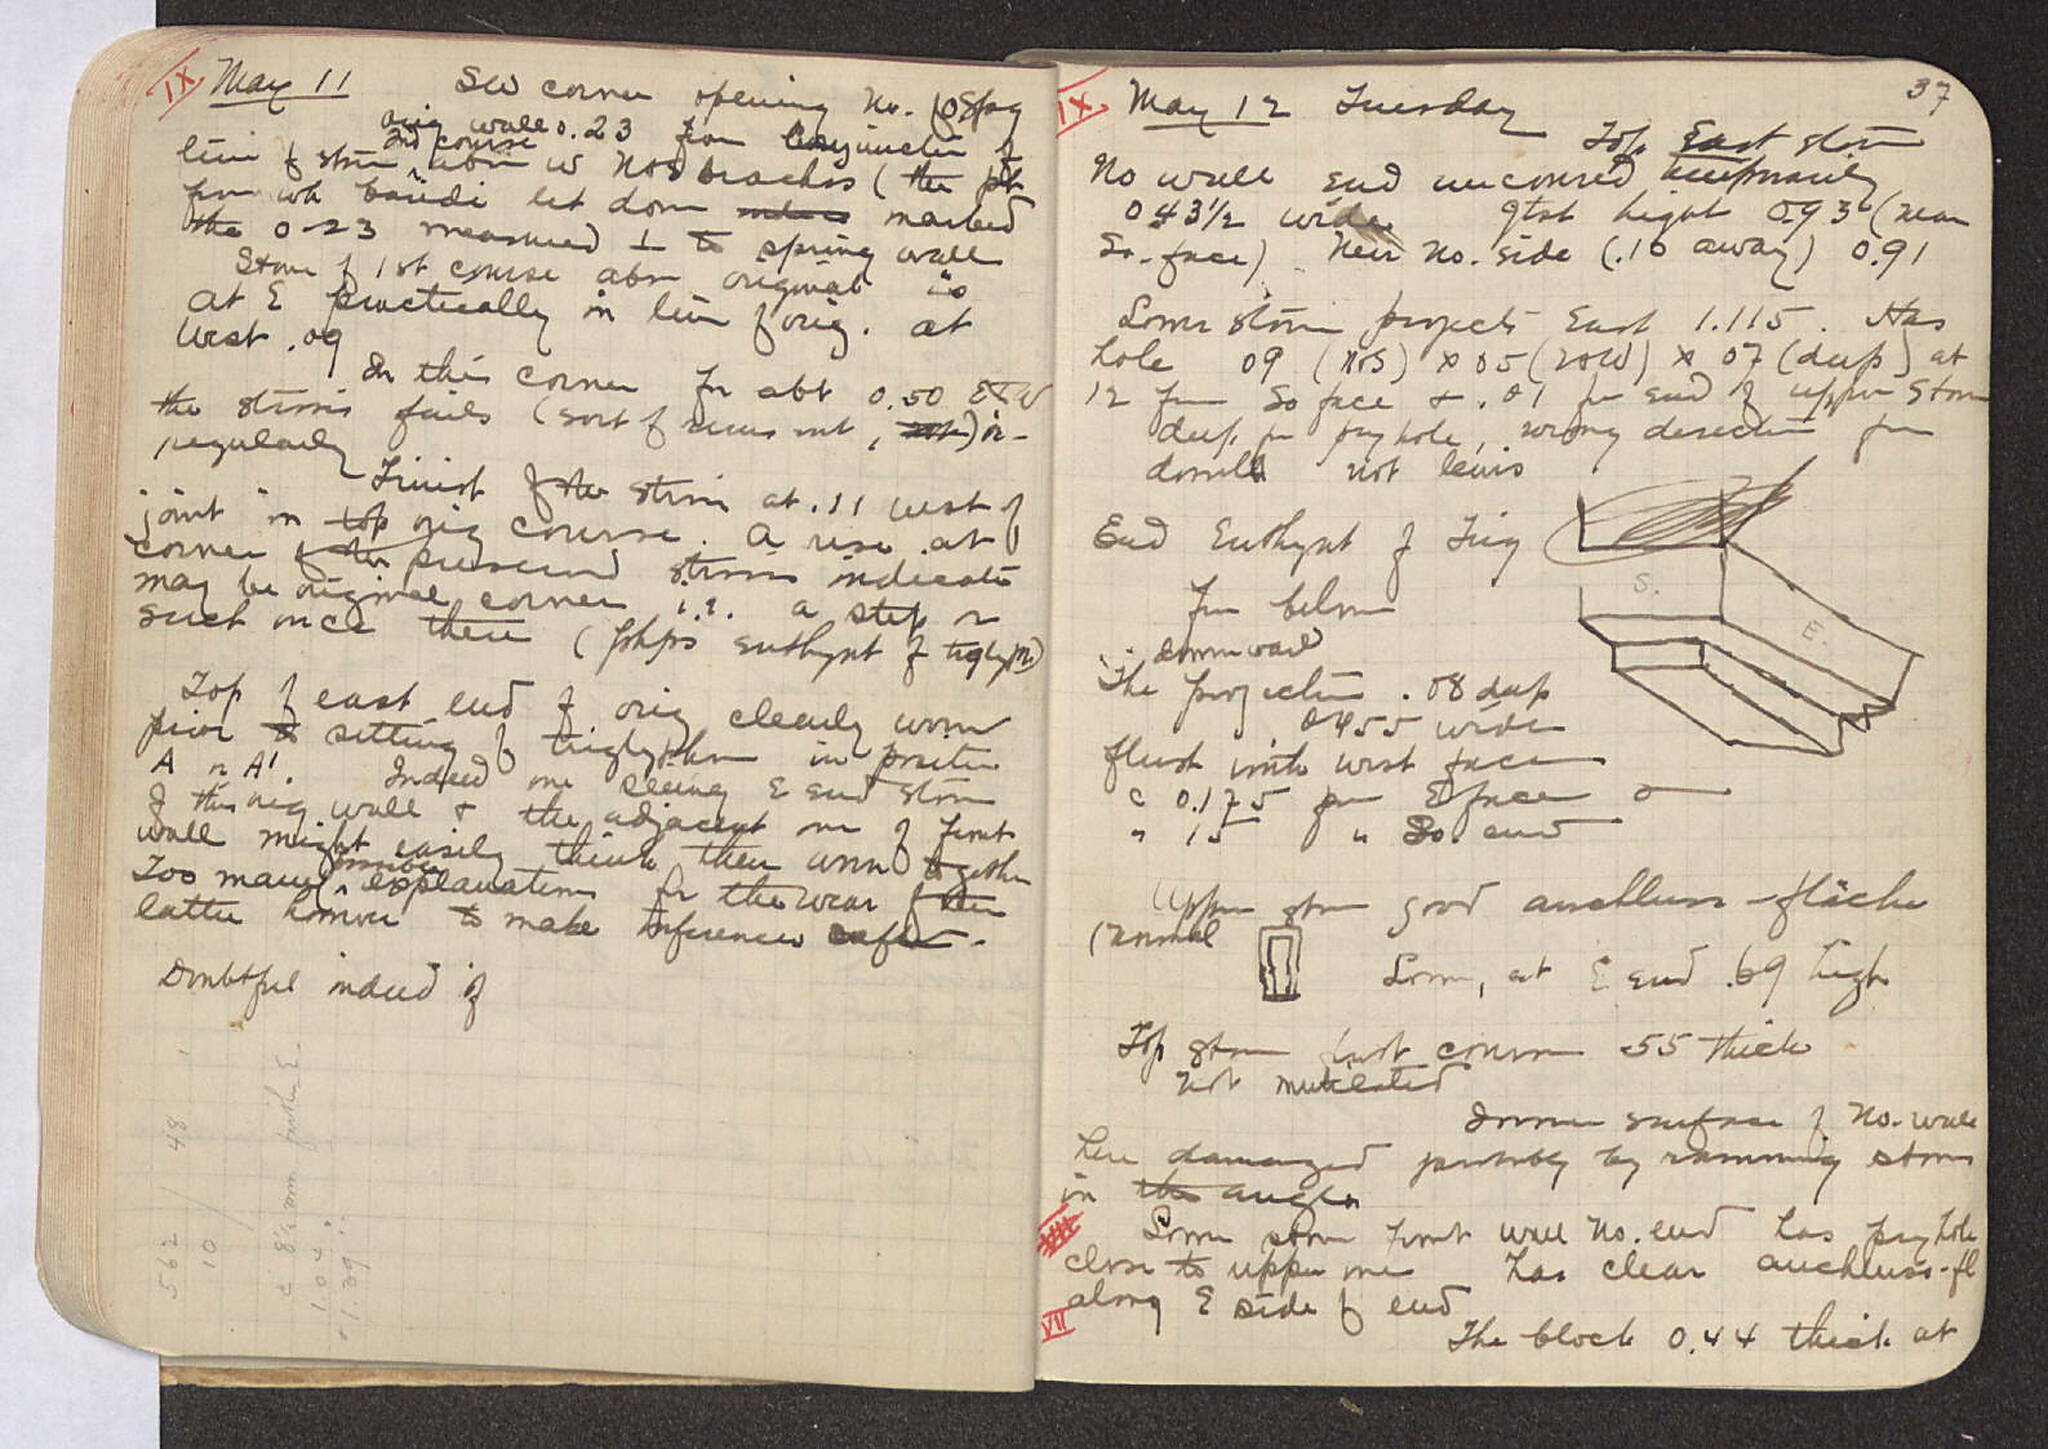 IX May 11 SW corner opening No.
orig wall 0.23 from conjunction of
2nd course
line of stone above w N & S (the pt
let down marked
the 0.23 measured ⊥ to spring wall
Stone of 1st course abv original is
at E practically in line of orig. at
West .09
In this corner for abt 0.50 E & W
the stone fails (sort of runs out, ) ir-
regularly
Finish of the stone at .11 west of
joint in top orig course. A rise at
corner of the preserved stone indicate
may be original corner i.e. a step or
such once there (phps euthynt of triglyph)
Top of east end of orig clearly worn
prior to setting of triglyphon in position
A or A'. Indeed one seeing E end stone
of this orig wall & the adjacent one of front
wall might easily think them worn together
possible
Too many explanations for the wear of the
latter however to make inferences safe.
Doubtful indeed if
562 / 48
10
c 8½ mm further E.
1.04
1.39
37
IX May 12 Tuesday
Top East stone
No wall end uncovered temporarily
0 43½ wide gtst hight 0.93 (near
So. face). Near No. side (.10 away) 0.91
Lower stone projects East 1.115. Has
hole 09 (N&S) x 05 (E&W) x 07 (deep) at
12 fm So face & .01 fm end of upper stone
deep for pry hole, wrong direction for
dowel not lewis
End Euthynt of Trig
fm below
S.
E.
downward
The projection .08 deep
0455 wide
flush with west face
c 0.175 fm E face
" 15 " So. end
Upper stone good anschluss-fläche
(normal
Lower, at E end .69 high
Top stone first course .55 thick
not mutilated
Inner surface of No. wall
here damaged probably by ramming stone
in the angle
Lower stone front wall No. end has pry hole
close to upper one has clear anschluss-fl
along E side of end
VII
The block 0.44 thick at